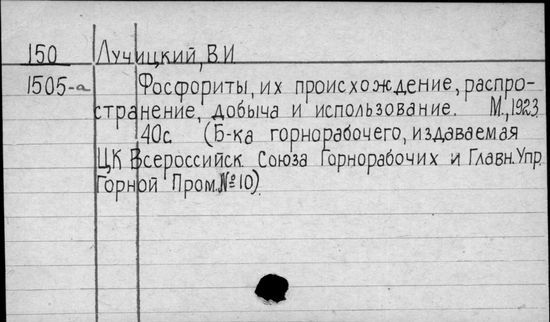 150 Лучицкий, В И
1505-а Фосфориты, их происхождение, распро-
странение, добыча и использование. М., 1923
40с. (Б-ка горнорабочего, издаваемая
ЦК Всероссийск. Союза Горнорабочих и Главн. Упр
Горной Пром. №10)